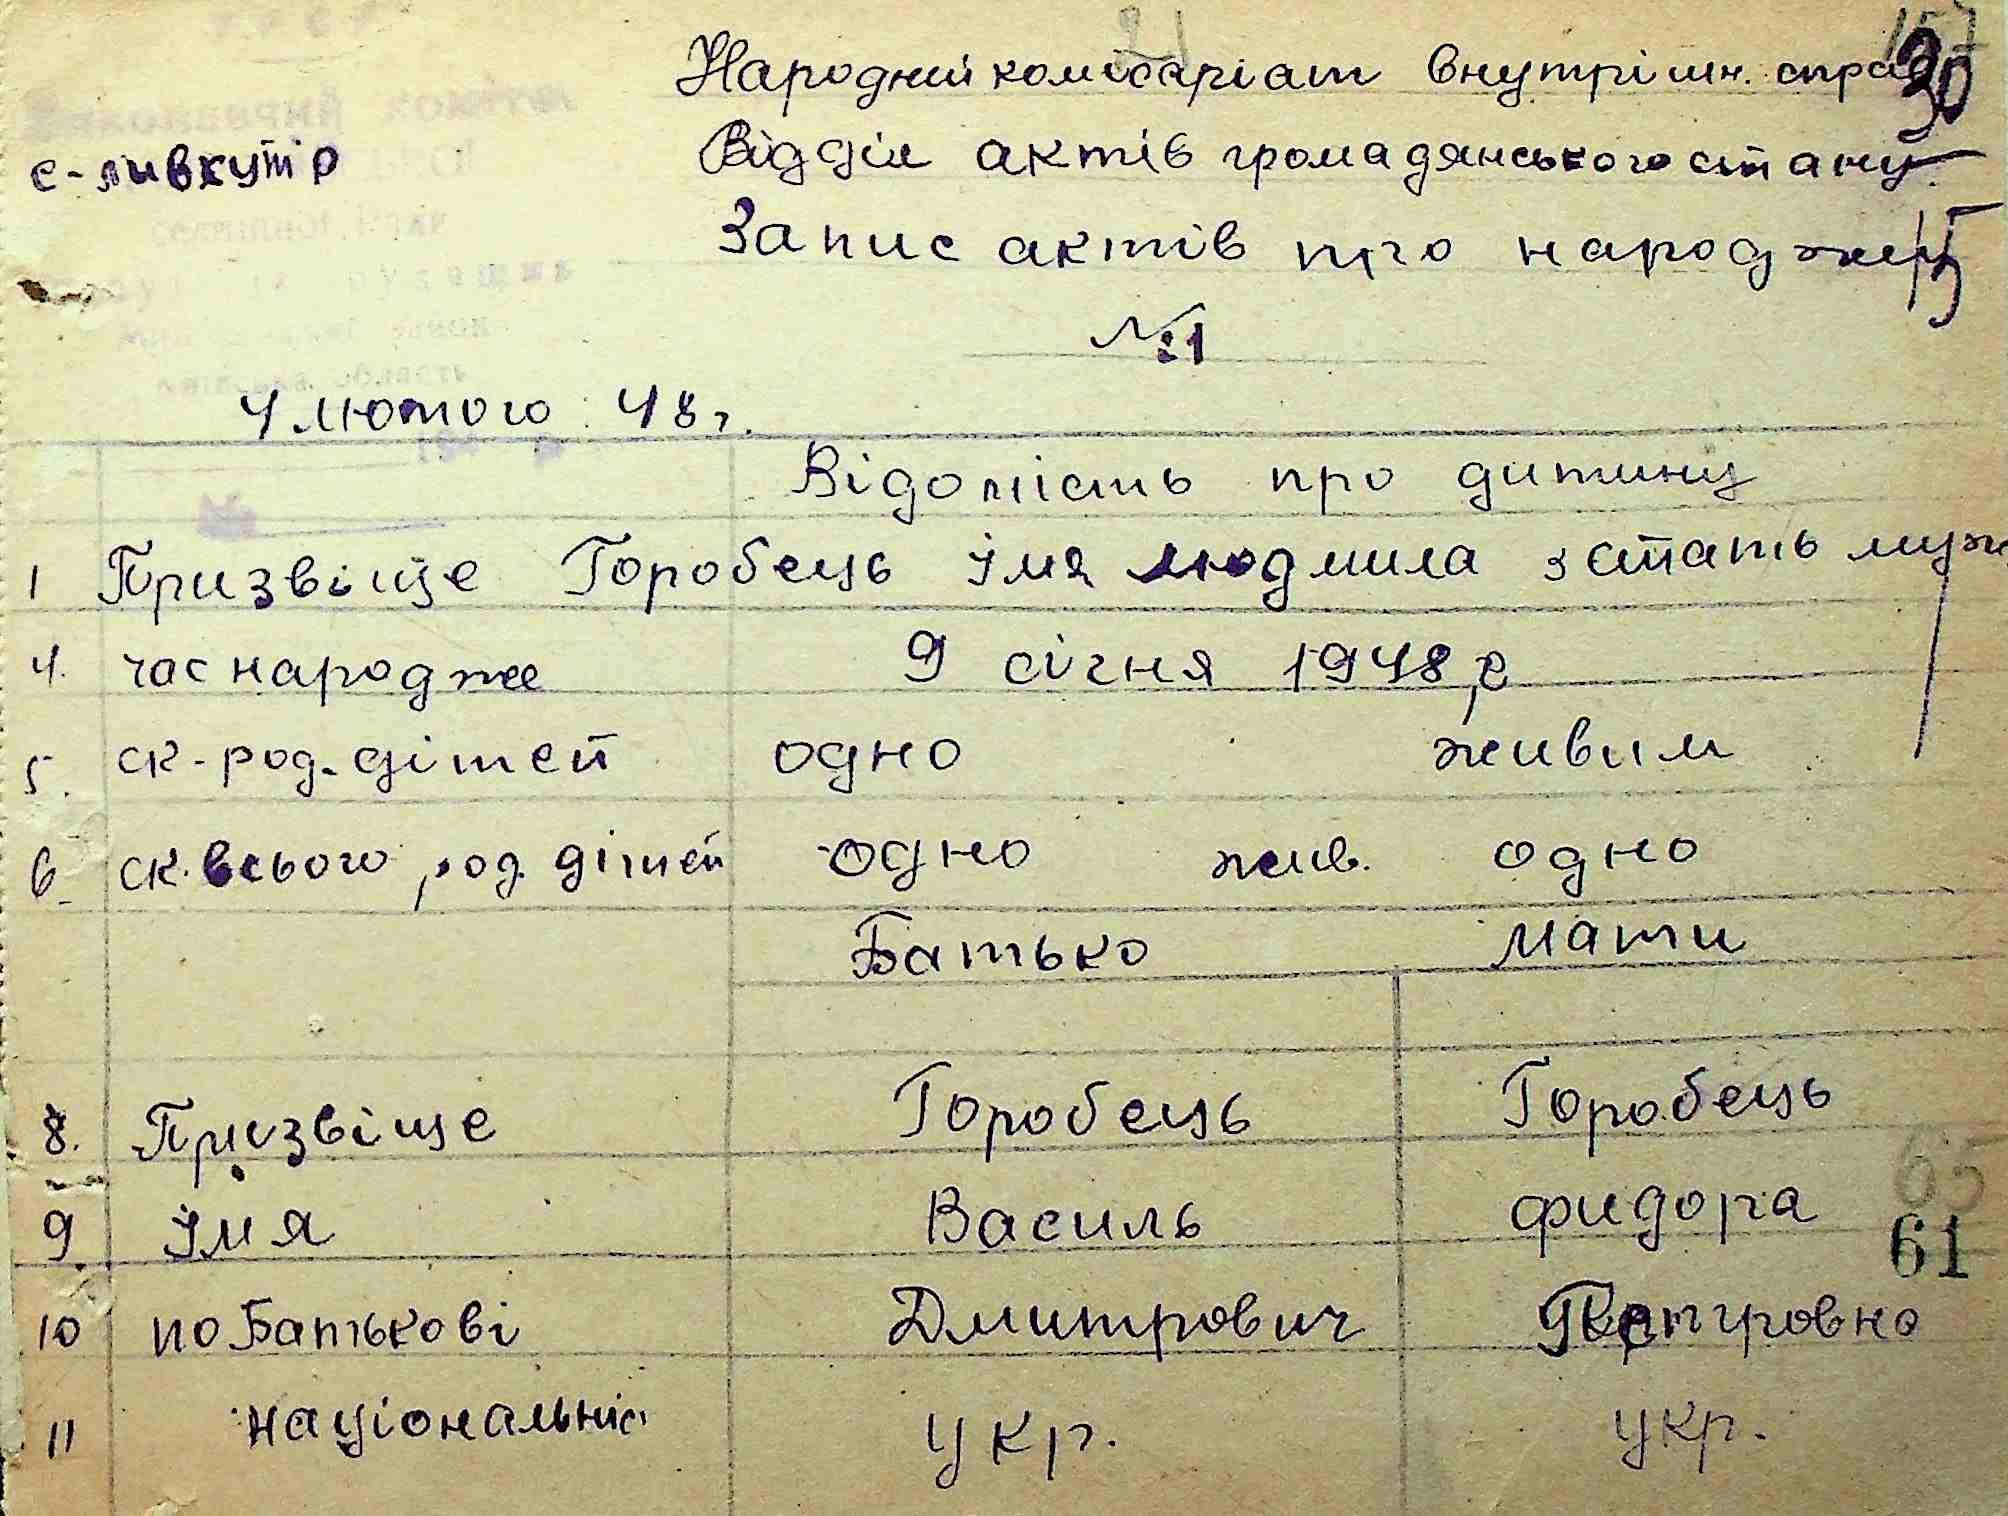 30
Народний комісаріат внутрішн. справ
с-ливкутір
Відділ актів громадянського стану
Запис актів про народжен
15
№1
4 лютого 48 г.
Відомість про дитину
1 Призвіще Горобець Імя людмила 3 стать муж
4. час народже 9 січня 1948 р
5. ск-род. дітей одно живим
6. ск. всього род. дітей одно жив. одно
Батько мати
8. Призвіще Горобець Горобець
9. Імя Василь фидора
65
61
10 по Батькові Дмитрович Петровна
11 національніс укр. укр.